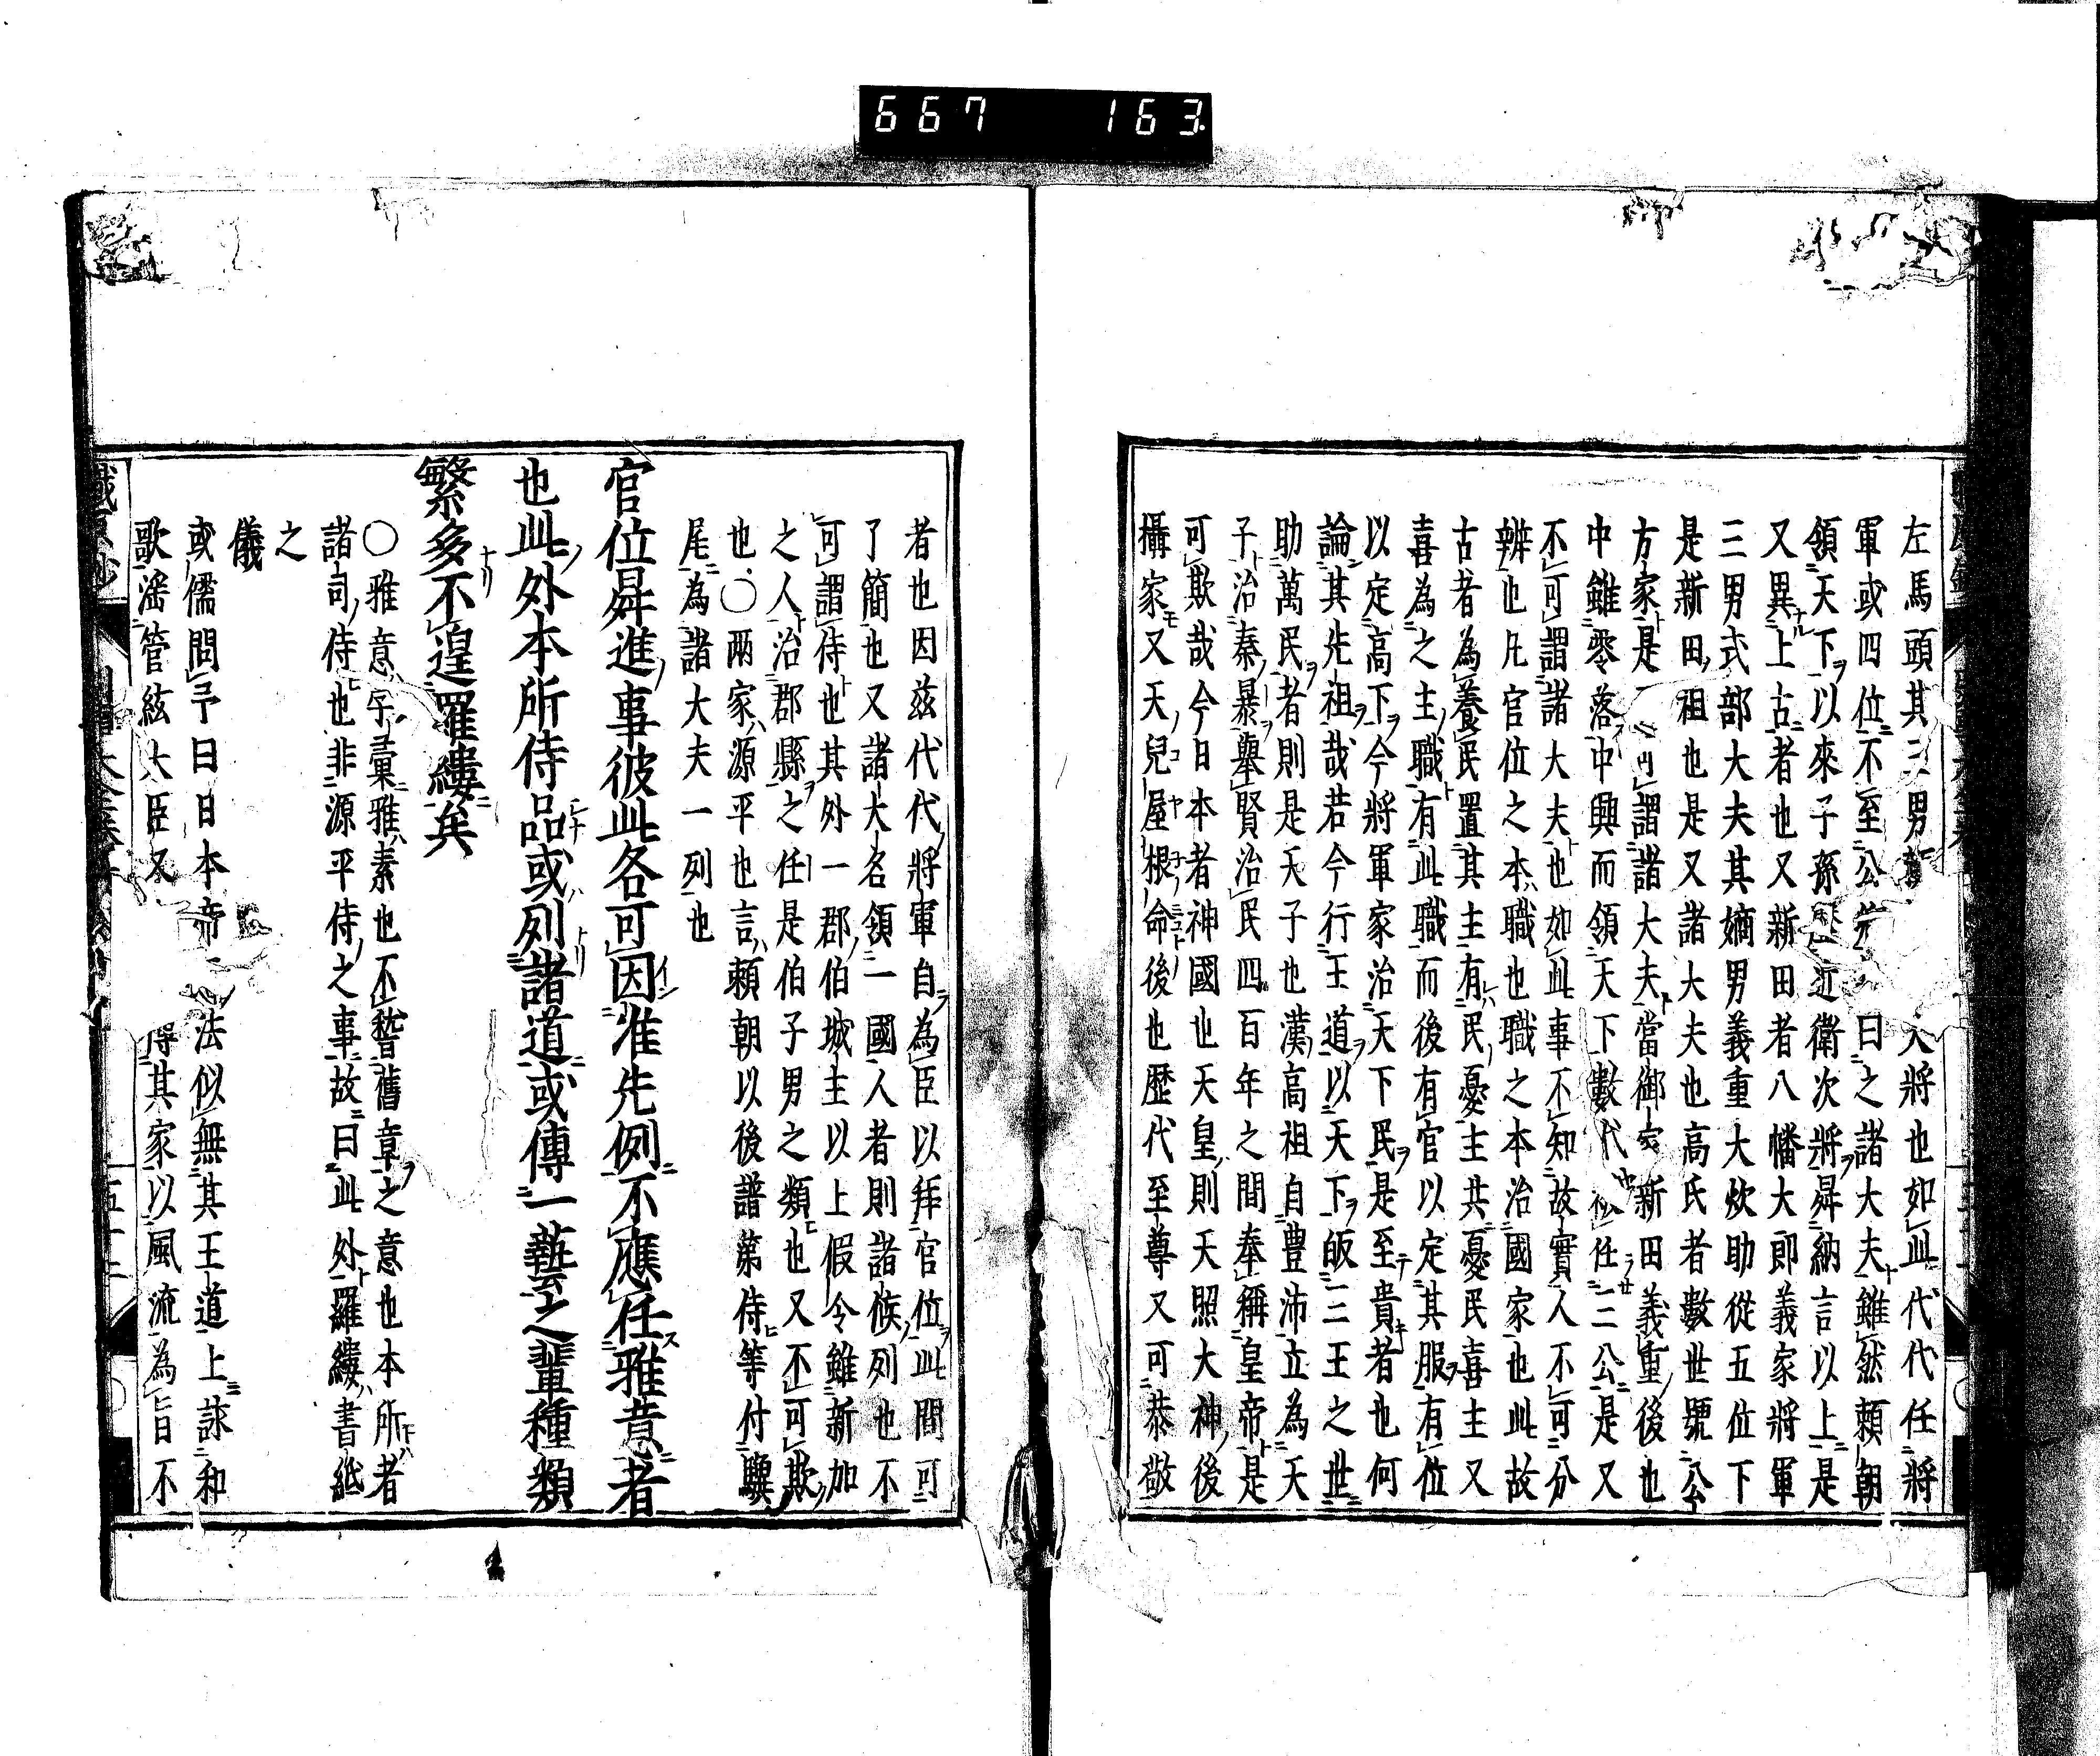 667 163
左馬頭其三男 大將也如此代代任將
軍或四位不至公 曰之諸大夫雖然賴朝
領天下以來子孫歷近衛次將昇納言以上是
又異上古者也又新田者八幡大郎義家將軍
三男式部大夫其嫡男義重大炊助從五位下
是新田祖也是又諸大夫也高氏者數世號公
方家是 謂諸大夫當御家新田義重後也
中雖零落中興而領天下數代 任三公是又
不可謂諸大夫也如此事不知故實人不可分
辨也凡官位之本職也職之本治國家也此故
古者為養民置其主有民憂主共憂民喜主又
喜為之主職有此職而後有官以定其服有位
以定高下今將軍家治天下民是至貴者也何
論其先祖哉若今行王道以天下皈二王之世
助萬民者則是天子也漢高祖自豊沛立為天
子治秦暴舉賢治民四百年之間奉稱皇帝是
可欺哉今日本者神國也天皇則天照大神後
攝家又天兒屋根命後也歷代至尊又可恭敬
者也因茲代代將軍自為臣以拜官位此間可
了簡也又諸大名領一國人者則諸候列也不
可謂侍也其外一郡伯城主以上假令雖新加
之人治郡縣之任是伯子男之類也又不可欺
也○兩家源平也言賴朝以後譜第侍等付驥
尾為諸大夫一列也
官位昇進事彼此各可因准先例不應任雅意者
也此外本所侍品或列諸道或傳一藝之輩種類
繁多不遑羅縷矣
○雅意字彙雅素也不諬舊章之意也本所者
諸司侍也非源平侍之事故曰此外羅縷書紙
之
儀
或儒問予曰日本帝 法似無其王道上詠和
歌滛管絃大臣又 得其家以風流為旨不